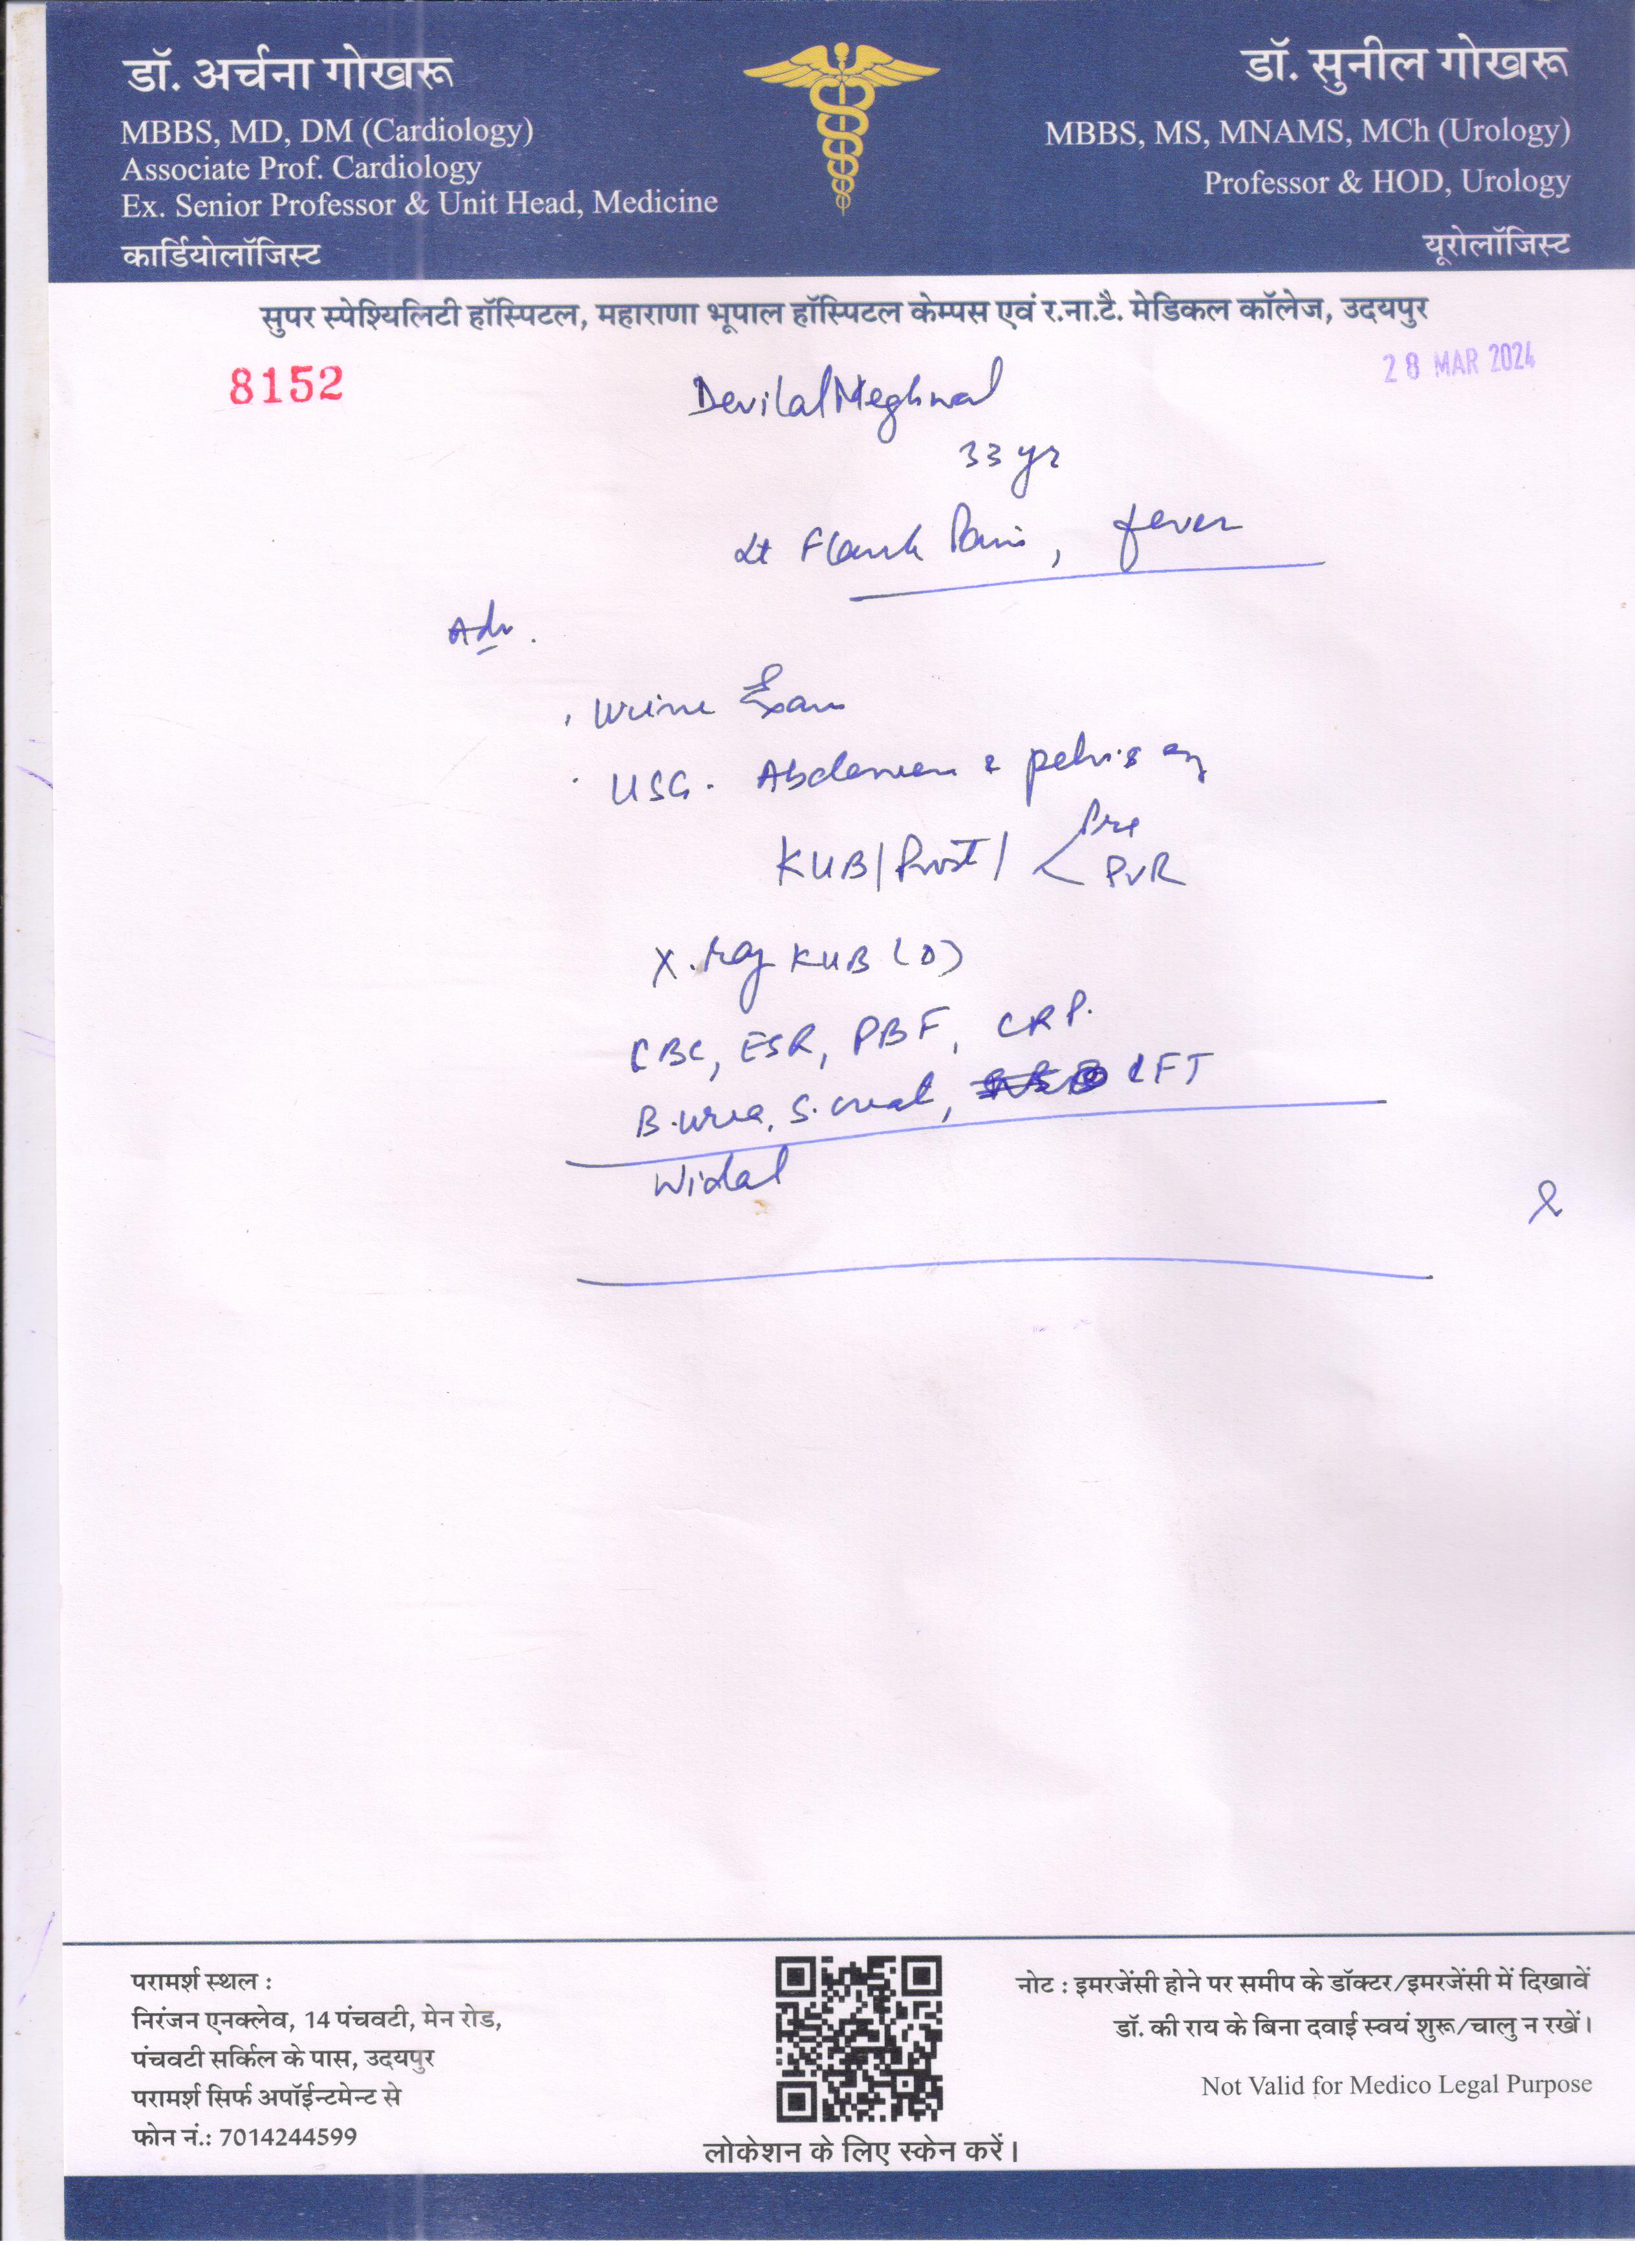 डॉ. अर्चना गोखरू
MBBS, MD, DM (Cardiology)
Associate Prof. Cardiology
Ex. Senior Professor & Unit Head, Medicine
कार्डियोलॉजिस्ट
डॉ. सुनील गोखरू
MBBS, MS, MNAMS, MCh (Urology)
Professor & HOD, Urology
यूरोलॉजिस्ट
सुपर स्पेश्यिलिटी हॉस्पिटल, महाराणा भूपाल हॉस्पिटल केम्पस एवं र.ना.टै. मेडिकल कॉलेज, उदयपुर
8152
28 MAR 2024
Devilal Meghwal
33 yr
Lt Flank Pain, fever
Adv.
Urine Exam
USG. Abdomen & pelvis
KUB/Prost/ < Pre
PVR
X.ray KUB (D)
CBC, ESR, PBF, CRP.
B.urea, S.creat, LFT
Widal
परामर्श स्थल :
निरंजन एनक्लेव, 14 पंचवटी, मेन रोड,
पंचवटी सर्किल के पास, उदयपुर
परामर्श सिर्फ अपॉईन्टमेन्ट से
फोन नं.: 7014244599
लोकेशन के लिए स्केन करें।
नोट : इमरजेंसी होने पर समीप के डॉक्टर/इमरजेंसी में दिखावें
डॉ. की राय के बिना दवाई स्वयं शुरू/चालु न रखें।
Not Valid for Medico Legal Purpose